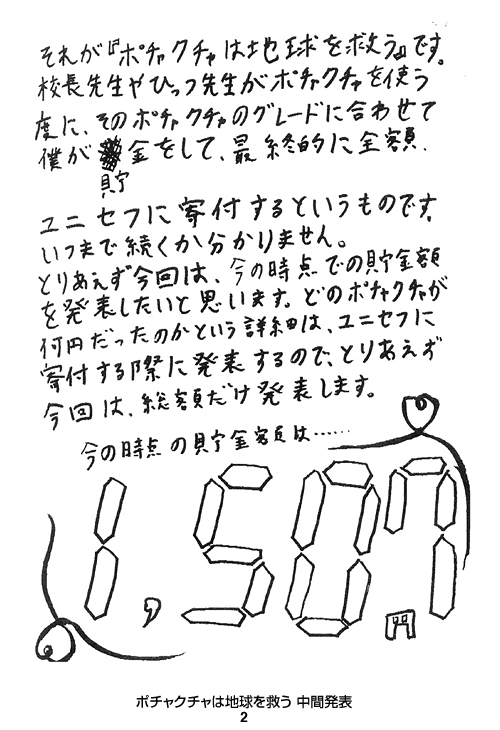 それが『ポチャクチャは地球を救う』です。
校長先生やひっつ先生がポチャクチャを使う
度に、そのポチャクチャのグレードに合わせて
僕が貯金をして、最終的に全額、
ユニセフに寄付するというものです。
いつまで続くか分かりません。
とりあえず今回は、今の時点での貯金額
を発表したいと思います。どのポチャクチャが
何円だったのかという詳細は、ユニセフに
寄付する際に発表するので、とりあえず
今回は、総額だけ発表します。
今の時点の貯金額は……
1,507円
ポチャクチャは地球を救う 中間発表
2